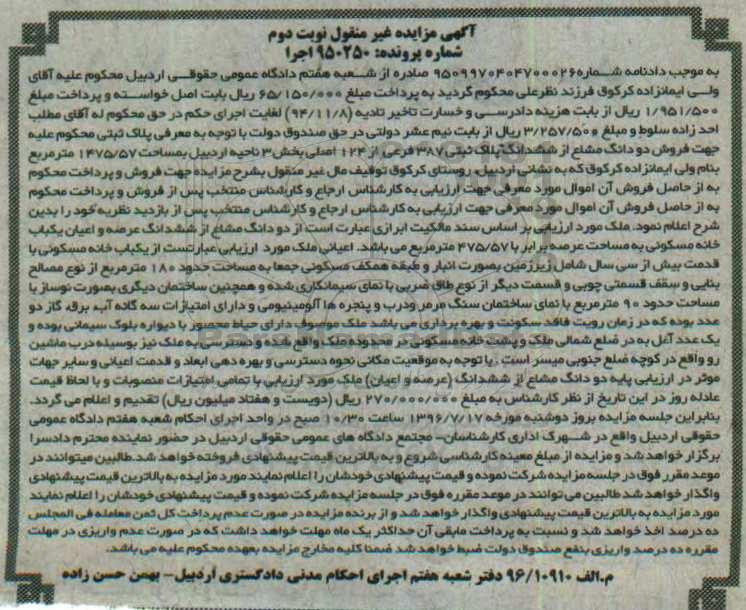 آگهی مزایده غیر منقول نوبت دوم
شماره پرونده: ۹۵۰۲۵۰ اجرا
به موجب دادنامه شماره ۹۵۰۹۹۷۰۴۰۴۷۰۰۰۲۶ صادره از شعبه هفتم دادگاه عمومی حقوقی اردبیل محکوم علیه آقای
ولی ایمانزاده کرکوق فرزند نظرعلی محکوم گردید به پرداخت مبلغ ۶۵/۱۵۰/۰۰۰ ریال بابت اصل خواسته و پرداخت مبلغ
۱/۹۵۱/۵۰۰ ریال از بابت هزینه دادرسی و خسارت تاخیر تادیه (۹۴/۱۱/۸) لغایت اجرای حکم در حق محکوم له آقای مطلب
احد زاده سلوط و مبلغ ۳/۲۵۷/۵۰۰ ریال از بابت نیم عشر دولتی در حق صندوق دولت با توجه به معرفی پلاک ثبتی محکوم علیه
جهت فروش دو دانگ مشاع از ششدانگ پلاک ثبتی ۳۸۷ فرعی از ۱۲۴ اصلی بخش ۳ ناحیه اردبیل بمساحت ۱۴۷۵/۵۷ مترمربع
بنام ولی ایمانزاده کرکوق که به نشانی اردبیل، روستای کرکوق توقیف مال غیر منقول بشرح مزایده جهت فروش و پرداخت محکوم
به از حاصل فروش آن اموال مورد معرفی جهت ارزیابی به کارشناس ارجاع و کارشناس منتخب پس از فروش و پرداخت محکوم
به از حاصل فروش آن اموال مورد معرفی جهت ارزیابی به کارشناس ارجاع و کارشناس منتخب پس از بازدید نظریه خود را بدین
شرح اعلام نمود. ملک مورد ارزیابی بر اساس سند مالکیت ابرازی عبارت است از دو دانگ مشاع از ششدانگ عرصه و اعیان یکباب
خانه مسکونی به مساحت عرصه برابر با ۴۷۵/۵۷ مترمربع می باشد. اعیانی ملک مورد ارزیابی عبارتست از یکباب خانه مسکونی با
قدمت بیش از سی سال شامل زیرزمین بصورت انبار و طبقه همکف مسکونی جمعا به مساحت حدود ۱۸۰ مترمربع از نوع مصالح
بنایی و سقف قسمتی چوبی و قسمت دیگر از نوع طاق ضربی با نمای سیمانکاری شده و همچنین ساختمان دیگری بصورت نوساز با
مساحت حدود ۹۰ مترمربع با نمای ساختمان سنگ مرمر ودرب و پنجره ها آلومینیومی و دارای امتیازات سه گانه آب، برق، گاز دو
عدد بوده که در زمان رویت فاقد سکونت و بهره برداری می باشد ملک موصوف دارای حیاط محصور با دیواره بلوک سیمانی بوده و
یک عدد آغل به در ضلع شمالی ملک و پشت خانه مسکونی در محدوده ملک واقع شده و دسترسی به ملک نیز بوسیله درب ماشین
رو واقع در کوچه ضلع جنوبی میسر است . با توجه به موقعیت مکانی نحوه دسترسی و بهره دهی ابعاد و قدمت اعیانی و سایر جهات
موثر در ارزیابی پایه دو دانگ مشاع از ششدانگ (عرصه و اعیان) ملک مورد ارزیابی با تمامی امتیازات منصوبات و با لحاظ قیمت
عادله روز در این تاریخ از نظر کارشناس به مبلغ ۲۷۰/۰۰۰/۰۰۰ ریال (دویست و هفتاد میلیون ریال) تقدیم و اعلام می گردد.
بنابراین جلسه مزایده بروز دوشنبه مورخه ۱۳۹۶/۷/۱۷ ساعت ۱۰/۳۰ صبح در واحد اجرای احکام شعبه هفتم دادگاه عمومی
حقوقی اردبیل واقع در شهرک اداری کارشناسان- مجتمع دادگاه های عمومی حقوقی اردبیل در حضور نماینده محترم دادسرا
برگزار خواهد شد و مزایده از مبلغ معینه کارشناسی شروع و به بالاترین قیمت پیشنهادی فروخته خواهد شد.طالبین میتوانند در
موعد مقرر فوق در جلسه مزایده شرکت نموده و قیمت پیشنهادی خودشان را اعلام نمایند مورد مزایده به بالاترین قیمت پیشنهادی
واگذار خواهد شد طالبین می توانند در موعد مقرره فوق در جلسه مزایده شرکت نموده و قیمت پیشنهادی خودشان را اعلام نمایند
مورد مزایده به بالاترین قیمت پیشنهادی واگذار خواهد شد و از برنده مزایده در صورت عدم پرداخت کل ثمن معامله فی المجلس
ده درصد اخذ خواهد شد و نسبت به پرداخت مابقی آن حداکثر یک ماه مهلت خواهد داشت که در صورت عدم واریزی در مهلت
مقرره ده درصد واریزی بنفع صندوق دولت ضبط خواهد شد ضمنا کلیه مخارج مزایده بعهده محکوم علیه می باشد.
م.الف ۹۶/۱۰۹۱۰ دفتر شعبه هفتم اجرای احکام مدنی دادگستری اردبیل- بهمن حسن زاده